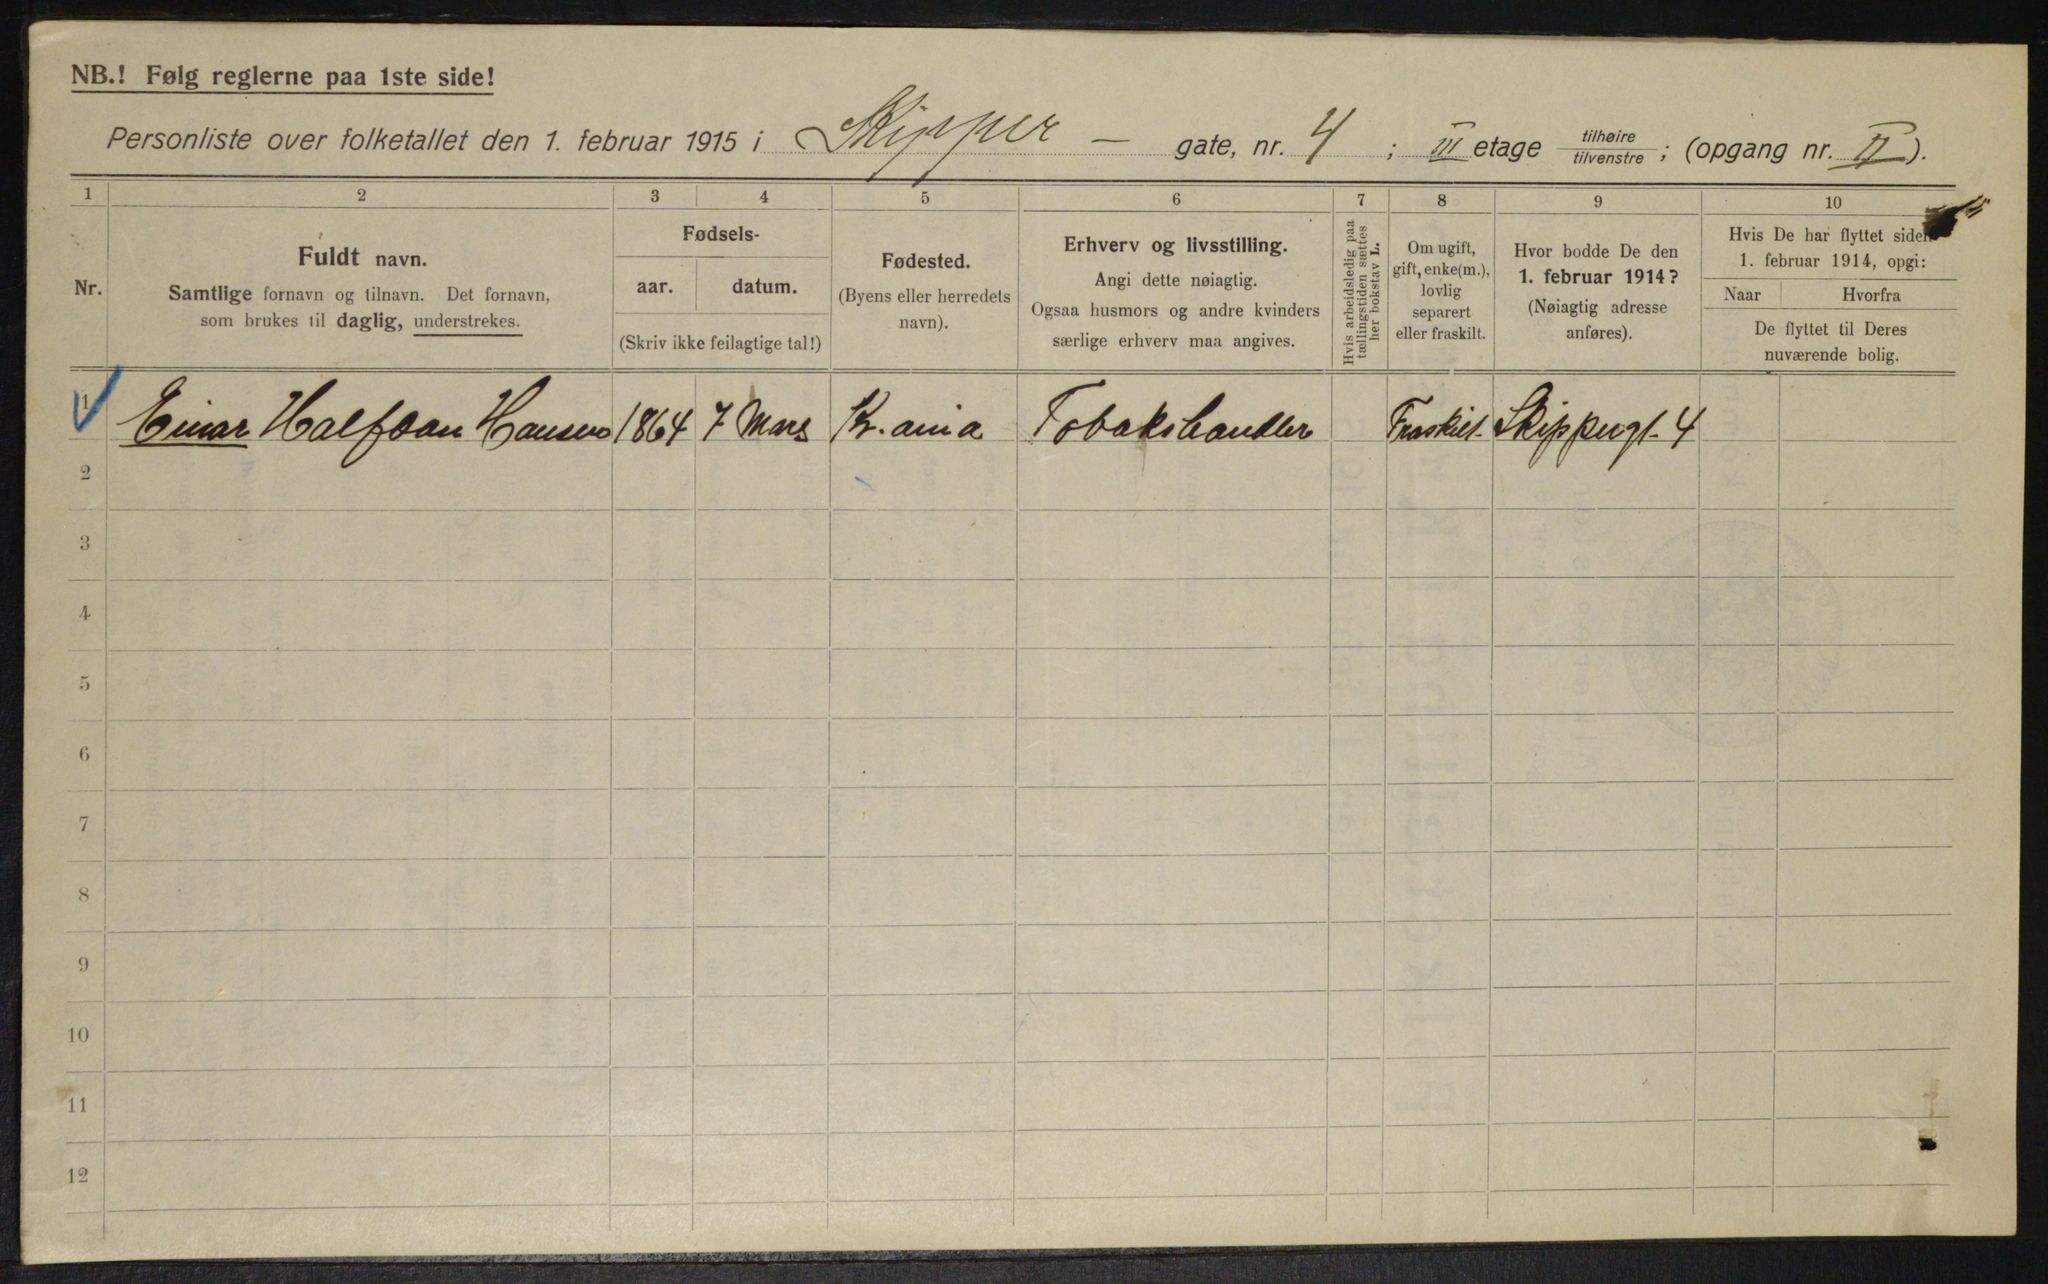 NB.! Følg reglerne paa 1ste side!
Personliste over folketallet den 1. februar 1915 i Skipper - gate, nr. 4 ; III etage tilhøire tilvenstre ; (opgang nr. II).
1 2 3 4 5 6 7 8 9 10
Nr.
Fuldt navn.
Samtlige fornavn og tilnavn. Det fornavn,
som brukes til daglig, understrekes.
Fødsels-
aar. datum.
(Skriv ikke feilagtige tal!)
Fødested.
(Byens eller herredets
navn).
Erhverv og livsstilling.
Angi dette nøiagtig.
Ogsaa husmors og andre kvinders
særlige erhverv maa angives.
Hvis arbeidsledig paa
tællingstiden sættes
her bokstav L.
Om ugift,
gift, enke(m.),
lovlig
separert
eller fraskilt.
Hvor bodde De den
1. februar 1914?
(Nøiagtig adresse
anføres).
Hvis De har flyttet siden
1. februar 1914, opgi:
Naar Hvorfra
De flyttet til Deres
nuværende bolig.
1 Einar Halfdan Hansen 1864 7 Mars Kr.ania Tobakshandler Fraskilt Skippergt. 4
2
3
4
5
6
7
8
9
10
11
12